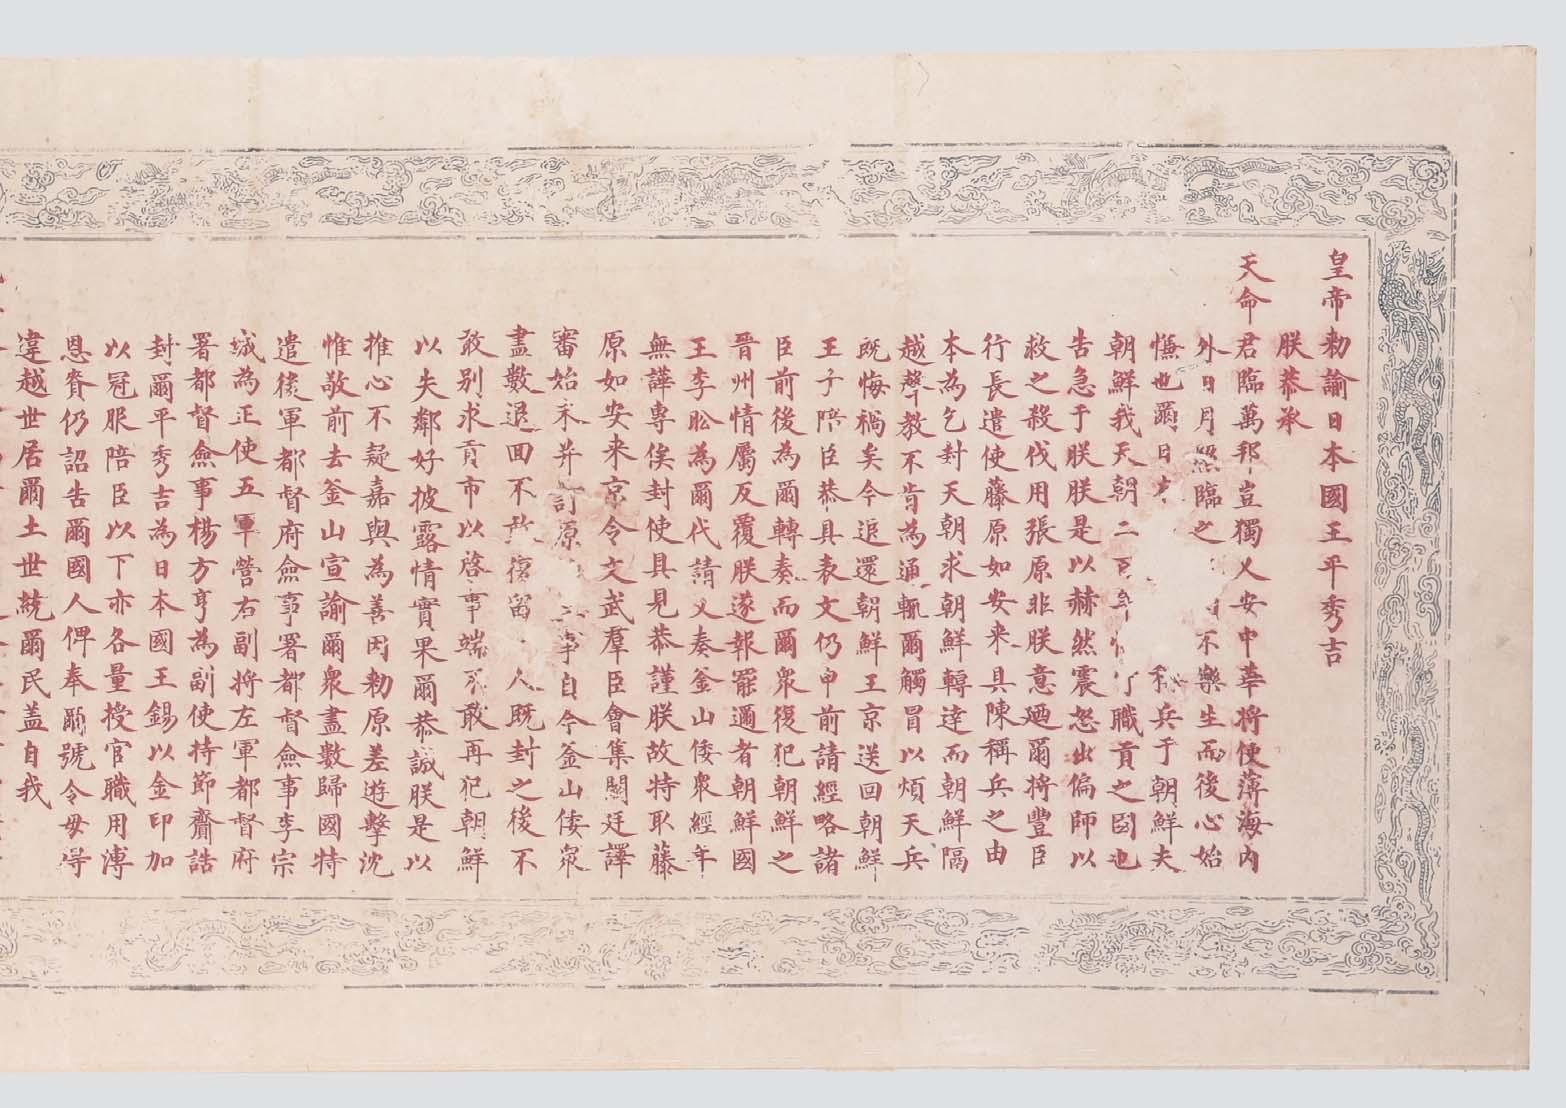 皇帝勅諭日本國王平秀吉
朕恭承
天命君臨萬邦豈獨乂安中華將使薄海內
外日月照臨之 不樂生而後心始
慊也爾日本 稱兵于朝鮮夫
朝鮮我天朝二百年 職貢之國也
告急于朕朕是以赫然震怒出偏師以
救之殺伐用張原非朕意廼爾將豐臣
行長遣使藤原如安来具陳稱兵之由
本為乞封天朝求朝鮮轉達而朝鮮隔
越聲教不肯為通輒爾觸冒以煩天兵
既悔禍矣今退還朝鮮王京送回朝鮮
王子陪臣恭具表文仍申前請經略諸
臣前後為爾轉奏而爾眾復犯朝鮮之
晉州情屬反覆朕遂報罷邇者朝鮮國
王李昖為爾代請又奏釜山倭眾經年
無譁專俟封使具見恭謹朕故特取藤
原如安来京令文武羣臣會集闕廷譯
審始末并訂原 三事自今釜山倭眾
盡數退回不敢復留一人既封之後不
敢別求貢市以啓事端不敢再犯朝鮮
以失鄰好披露情實果爾恭誠朕是以
推心不疑嘉與為善因勅原差遊擊沈
惟敬前去釜山宣諭爾眾盡數歸國特
遣後軍都督府僉事署都督僉事李宗
城為正使五軍營右副將左軍都督府
署都督僉事楊方亨為副使持節齎誥
封爾平秀吉為日本國王錫以金印加
以冠服陪臣以下亦各量授官職用溥
恩賚仍詔告爾國人俾奉爾號令毋得
違越世居爾土世統爾民蓋自我